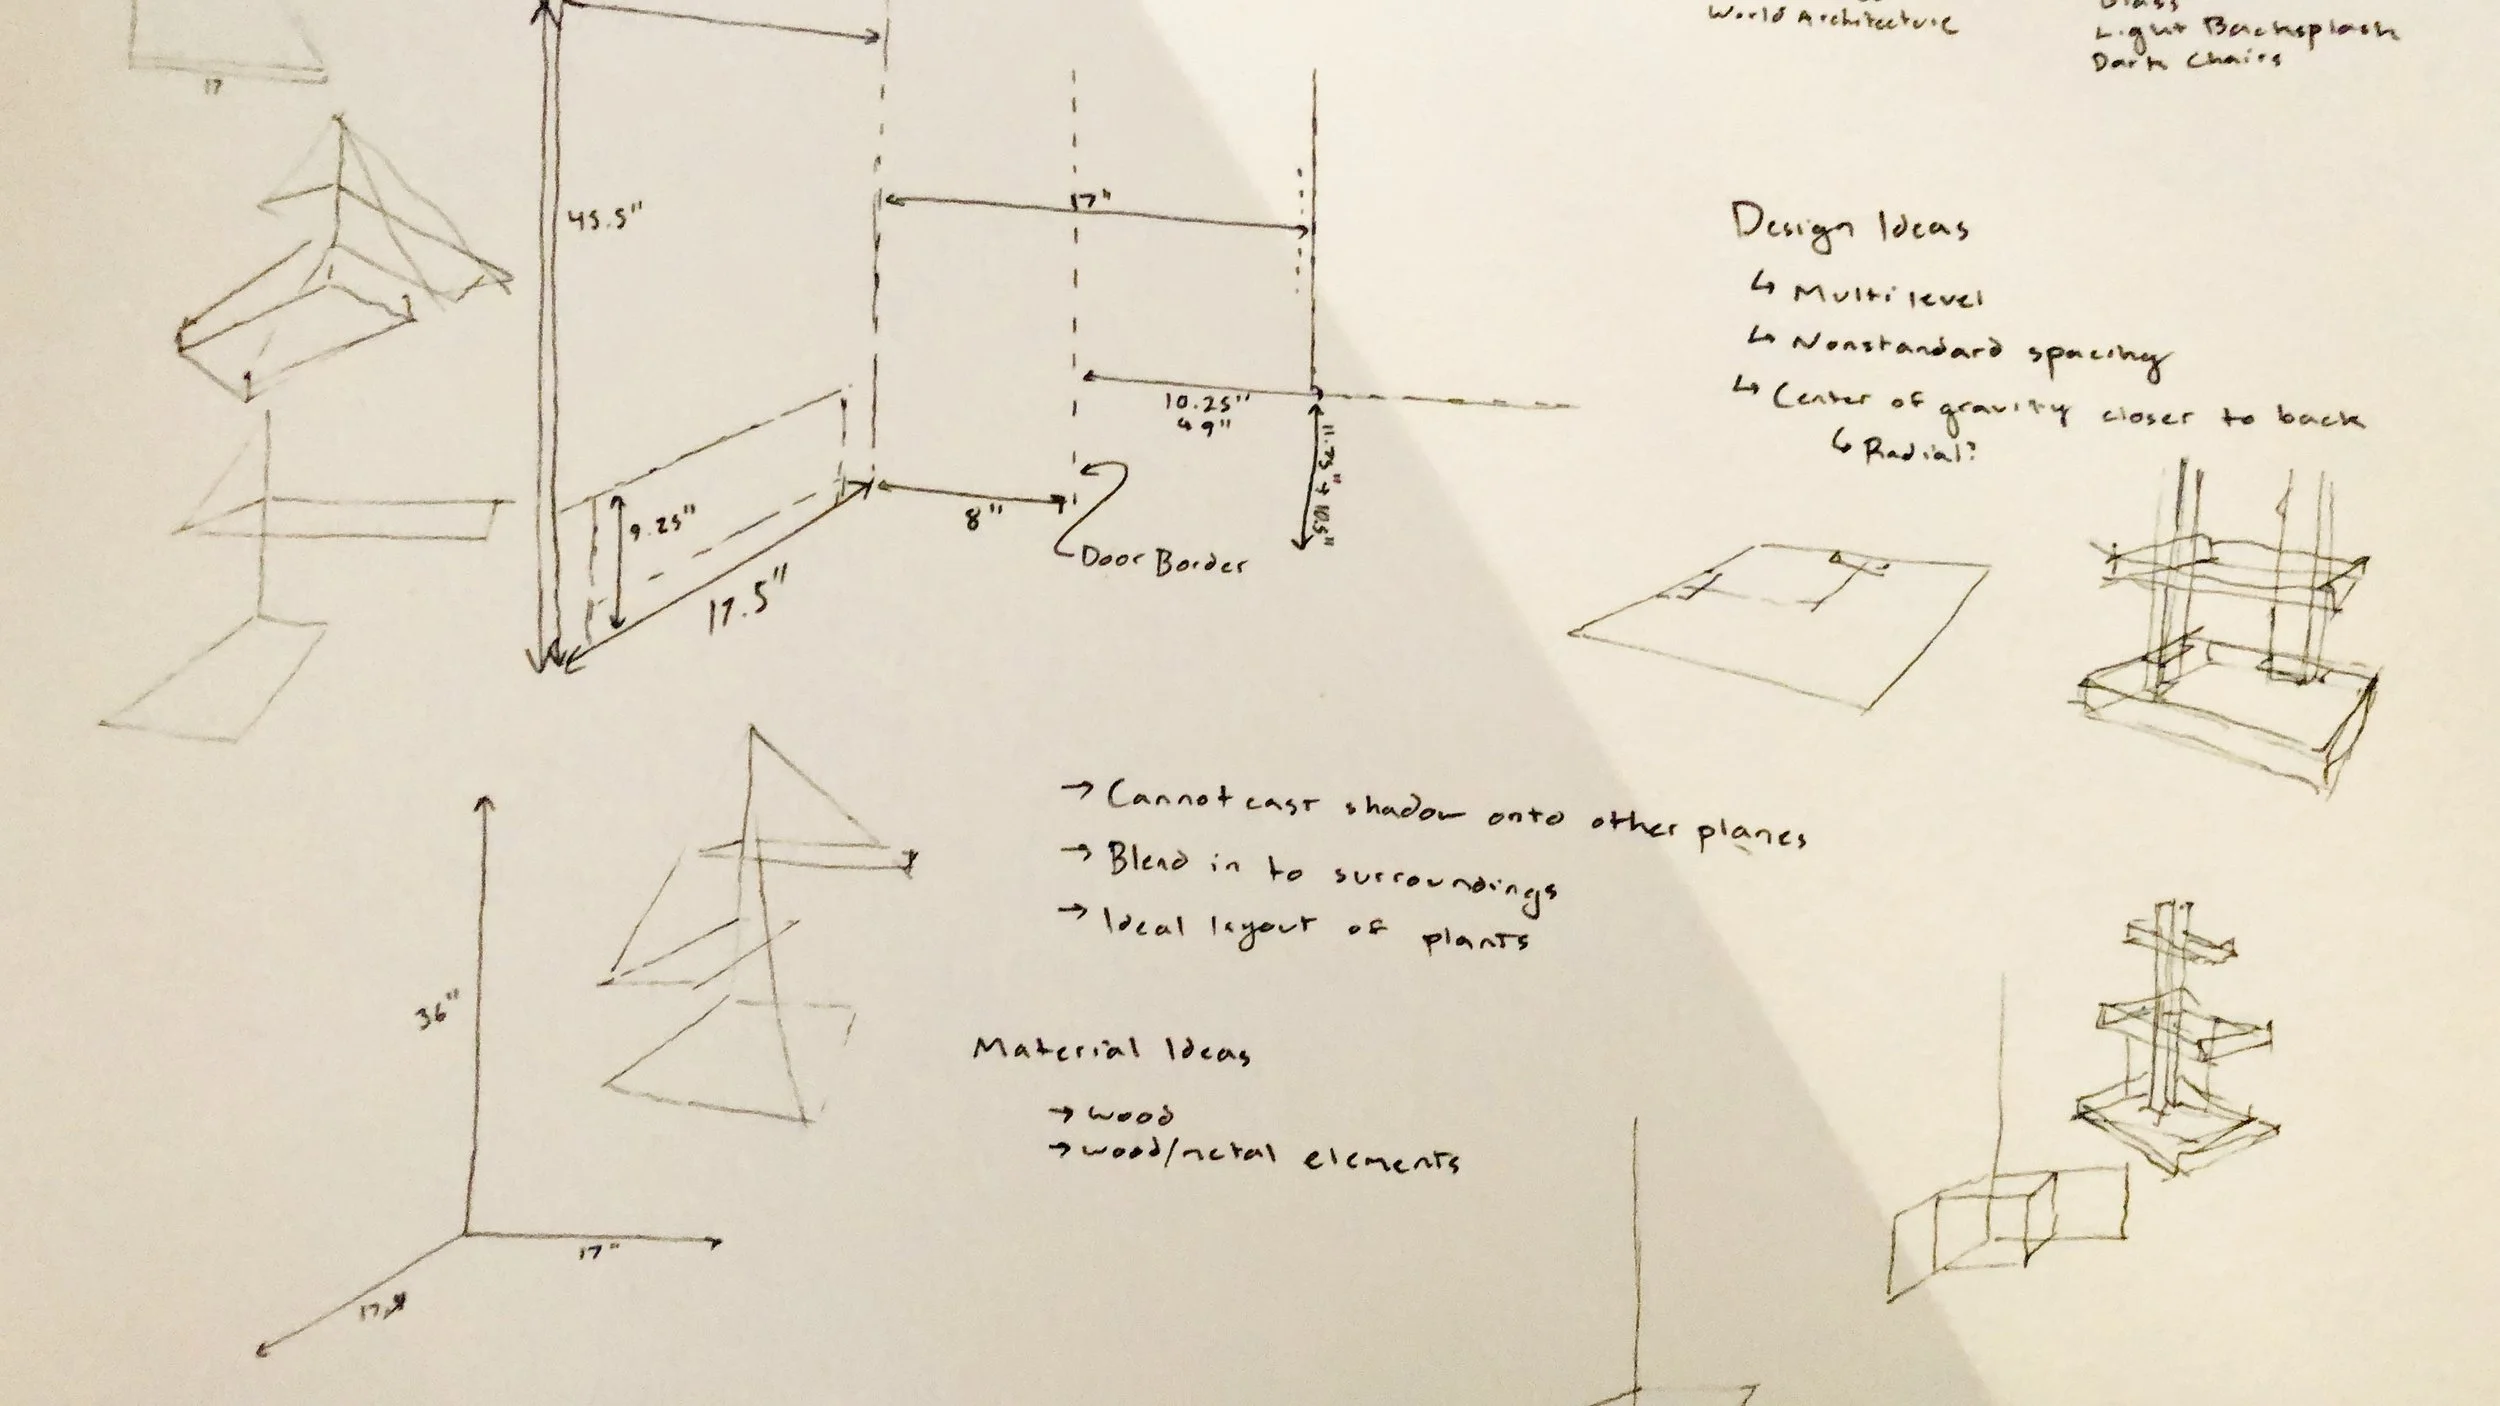 World Architecture
Glass
Light Backsplash
Dark Chairs
17
45.5"
17"
10.25"
49"
11.75" + 10.5"
9.25"
8"
Door Border
17.5"
Design Ideas
↳ Multilevel
↳ Nonstandard spacing
↳ Center of gravity closer to back
↳ Radial?
→ Cannot cast shadow onto other planes
→ Blend in to surroundings
→ Ideal layout of plants
Material Ideas
→ wood
→ wood/metal elements
36"
17"
17